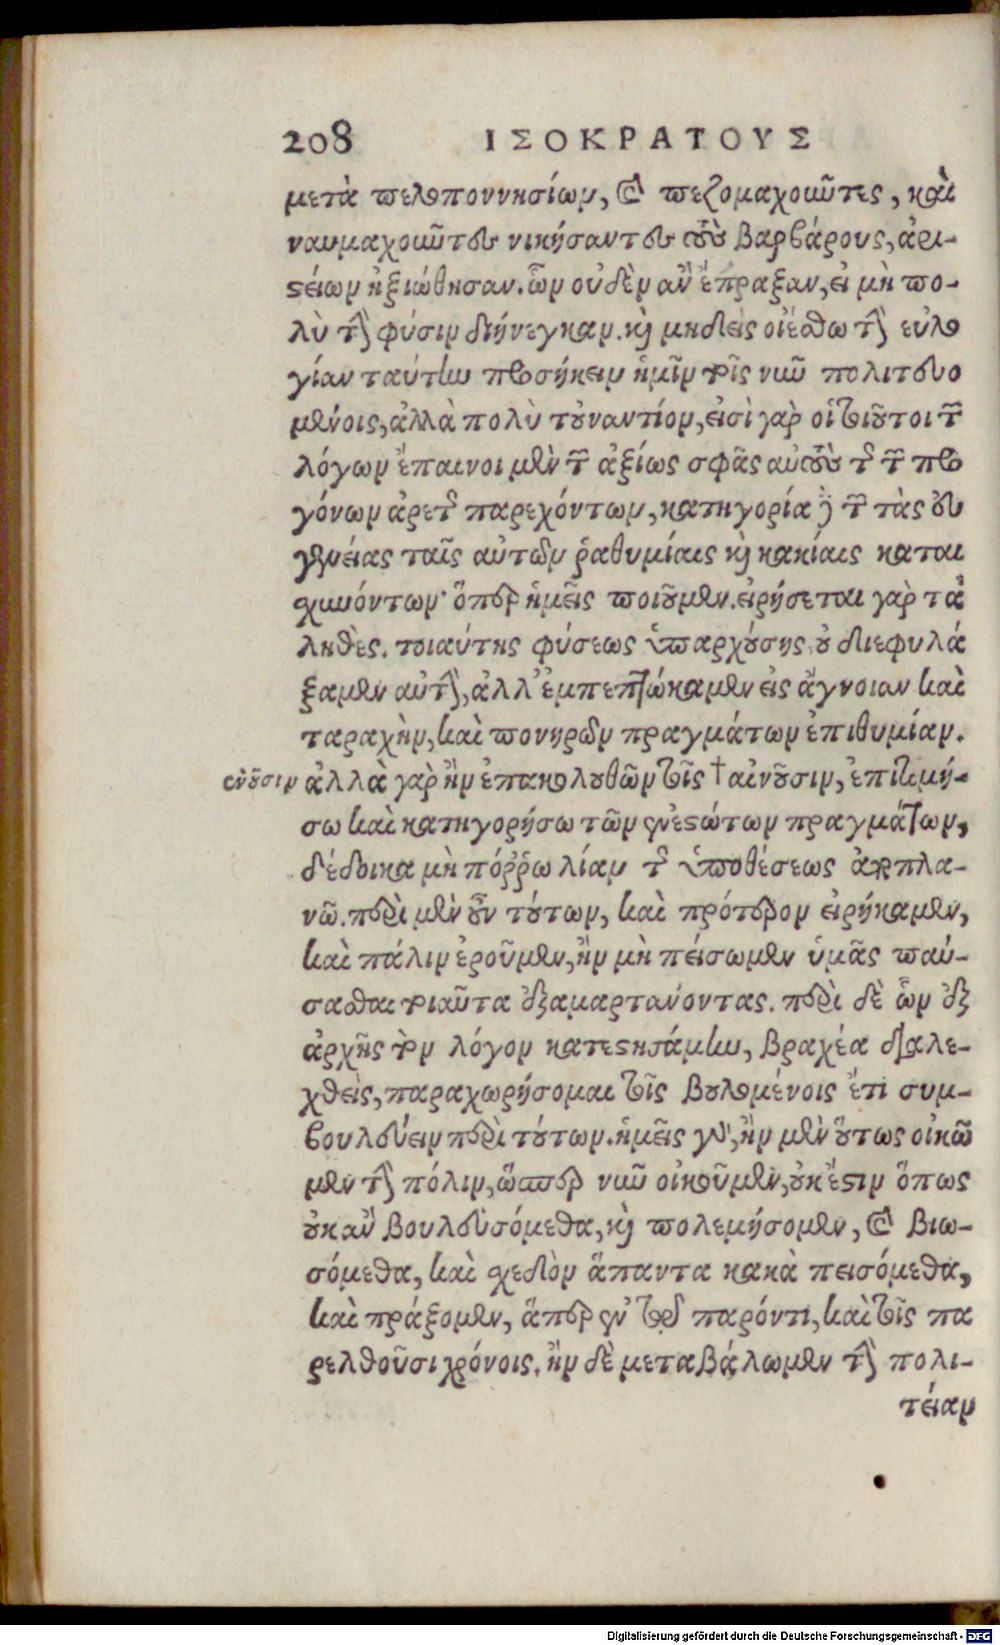 208 ΙΣΟΚΡΑΤΟΥΣ
μετὰ πελοποννησίων, καὶ πεζομαχοῦντες, καὶ
ναυμαχοῦντες νικήσαντες τοὺς βαρβάρους, ἀρι-
στείων ἠξιώθησαν. ὧν οὐδὲν ἂν ἔπραξαν, εἰ μὴ πο-
λὺ τὴν φύσιν διήνεγκαν. καὶ μηδεὶς οἰέσθω τὴν εὐλο
γίαν ταύτην προσήκειν ἡμῖν τοῖς νῦν πολιτευο
μένοις, ἀλλὰ πολὺ τοὐναντίον, εἰσὶ γὰρ οἱ τοιοῦτοι τῶν
λόγων ἔπαινοι μὲν τῶν ἀξίως σφᾶς αὐτοὺς τῆς τῶν προ
γόνων ἀρετῆς παρεχόντων, κατηγορία δὲ τῶν τὰς εὐ
γενείας ταῖς αὐτῶν ῥαθυμίαις καὶ κακίαις καται
σχυνόντων· ὅπερ ἡμεῖς ποιοῦμεν. εἰρήσεται γὰρ τἀ
ληθές. τοιαύτης φύσεως ὑπαρχούσης οὐ διεφυλά
ξαμεν αὐτὴν, ἀλλ' ἐμπεπτώκαμεν εἰς ἄγνοιαν καὶ
ταραχὴν, καὶ πονηρῶν πραγμάτων ἐπιθυμίαν.
ἐνοῦσιν ἀλλὰ γὰρ ἢν ἐπακολουθῶν τοῖς † αἰνοῦσιν, ἐπιτιμή-
σω καὶ κατηγορήσω τῶν ἐνεστώτων πραγμάτων,
δέδοικα μὴ πόῤῥω λίαν τῆς ὑποθέσεως ἀποπλα-
νῶ. περὶ μὲν οὖν τούτων, καὶ πρότερον εἰρήκαμεν,
καὶ πάλιν ἐροῦμεν, ἢν μὴ πείσωμεν ὑμᾶς παύ-
σασθαι τοιαῦτα ἐξαμαρτάνοντας. περὶ δὲ ὧν ἐξ
ἀρχῆς τὸν λόγον κατεστησάμην, βραχέα διαλε-
χθεὶς, παραχωρήσομαι τοῖς βουλομένοις ἔτι συμ-
βουλεύειν περὶ τούτων. ἡμεῖς γὰρ, ἢν μὲν οὕτως οἰκῶ
μεν τὴν πόλιν, ὥσπερ νῦν οἰκοῦμεν, οὐκ ἔστιν ὅπως
οὐκ ἂν βουλευσόμεθα, καὶ πολεμήσομεν, καὶ βιω-
σόμεθα, καὶ σχεδὸν ἅπαντα κακὰ πεισόμεθα,
καὶ πράξομεν, ἅπερ ἐν τῷ παρόντι, καὶ τοῖς πα
ρελθοῦσι χρόνοις. ἢν δὲ μεταβάλωμεν τὴν πολι-
τείαν
Digitalisierung gefördert durch die Deutsche Forschungsgemeinschaft - DFG